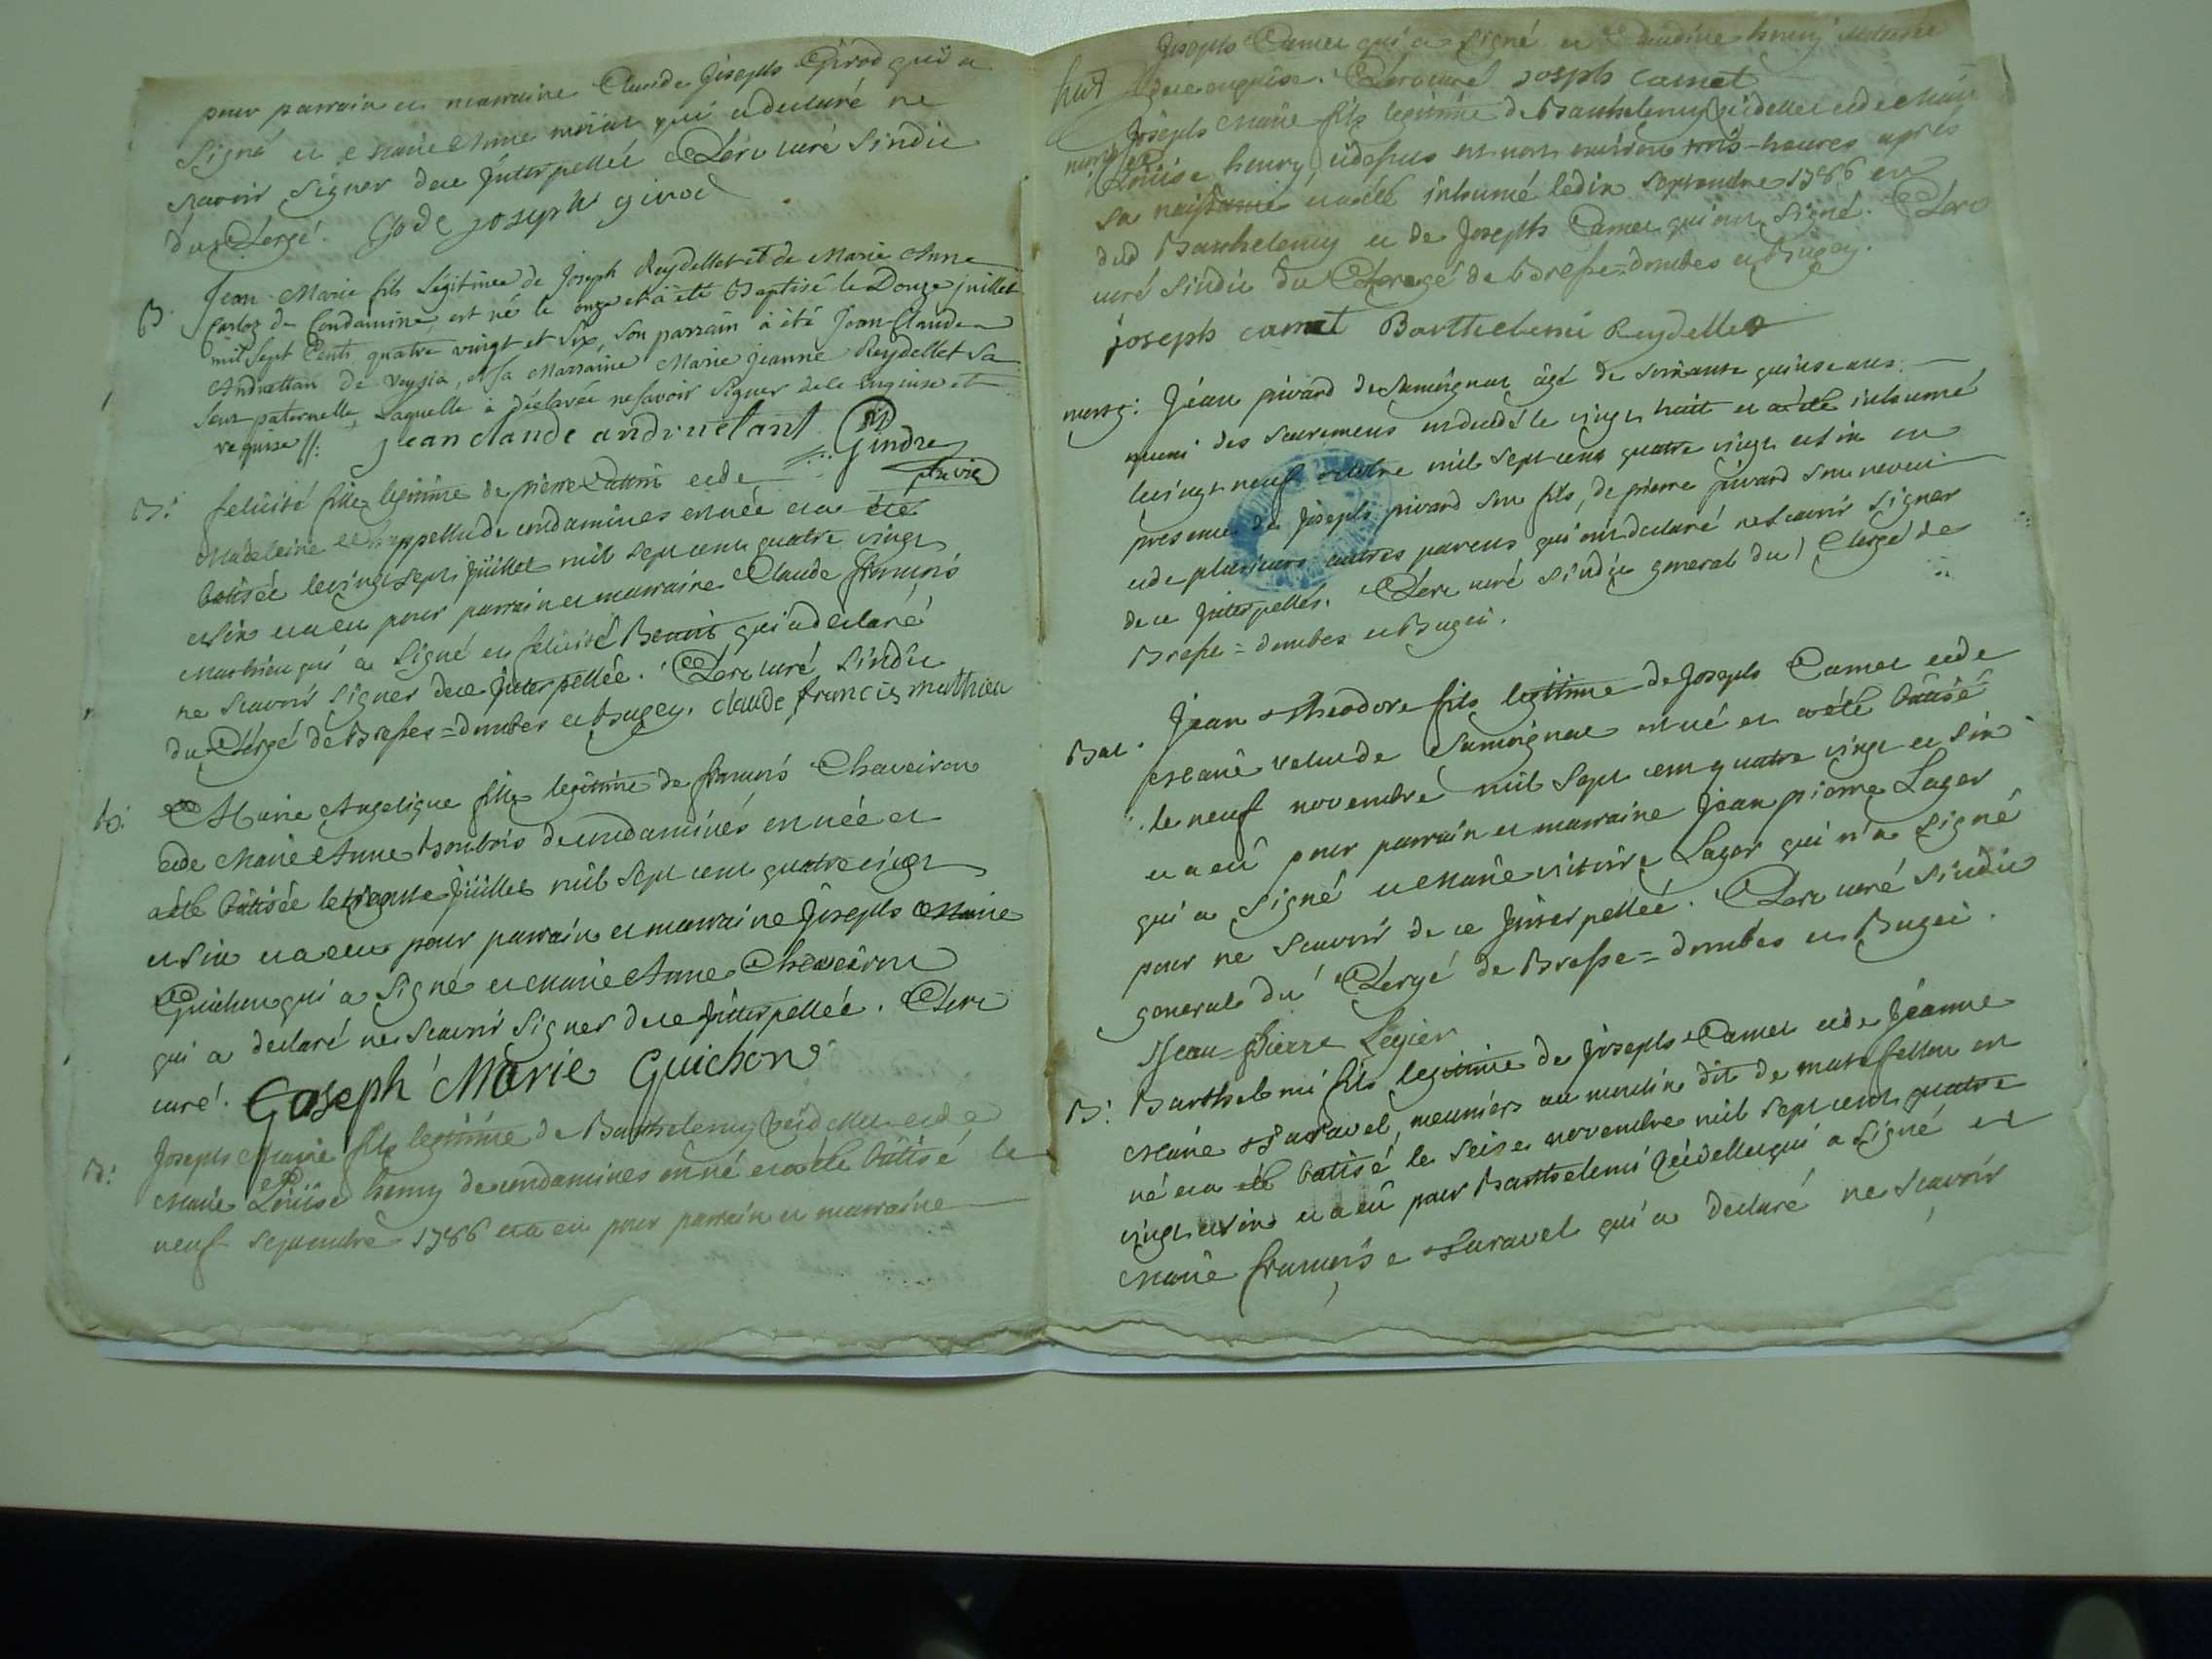 pour parrain et marraine Claude Joseph Girod qui a
signé et Marie Anne qui a declaré ne
scavoir signer de ce interpellée Clerc curé sindic
du Clergé. Gode joseph girod
B. Jean Marie fils Légitime de Joseph Reydellet et de Marie Anne
Carloz de Condamine, est né le onze et à été Baptisé le Douze juillet
mil sept Cents quatre vingt et Six, Son parrain à été Jean Claude
Andruettan de Veyzia, et sa Marraine Marie jeanne Reydellet sa
Seur paternelle, Laquelle à déclarée ne savoir Signer de le enquise et
requise //. jean claude andruetant Gindre
B: felicité fille legitime de pierre et de
Madeleine de condamines est née et a été
batisée le vingt sept juillet mil sept cent quatre vingt
et six et a eu pour parrain et marraine Claude françois
Mathieu qui a signé et felicité Benoit qui a déclaré
ne scavoir signer de ce interpellée. Clerc curé sindic
du Clergé de Bresse = dombes et bugey. claude francois mathieu
b: Marie Angelique fille legitime de françois Chaveiron
et de Marie Anne de condamines est née et
a été batisée le trente juillet mil sept cent quatre vingt
et six et a eu pour parrain et marraine Joseph Marie
Guichon qui a signé et marie Anne Chaveiron
qui a declaré ne scavoir signer de ce interpellée. Clerc
curé. Goseph Marie Guichon
B: Joseph Marie fils legitime de Barthelemy Reidellet et de
Marie Louise henry de condamines est né et a été batisé le
neuf septembre 1786 et a eu pour parrain et marraine
Joseph Camet qui a signé et henry
de ce enquise. Clerc curé joseph camet
mort Joseph Marie fils legitime de Barthelemy Reidellet et de Marie
Louise henry, cidessus est mort environ trois heures après
sa naissance et a été inhumé le dix septembre 1786 en
dud Barthelemy et de Joseph Camet qui ont signé. Clerc
curé sindic du Clergé de Bresse = dombes et Bugey.
joseph camet Barthelemi Reydellet
Jean pivard de Samognat âgé de soixante quinse ans
muni des sacremens est décédé le vingt huit et a été inhumé
le vingt neuf octobre mil sept cent quatre vingt et six en
presence de Joseph pivard son fils, de pierre pivard son neveu
et de plusieurs autres parens qui ont declaré ne scavoir signer
de ce interpellés. Clerc curé sindic general du Clergé de
Bresse = dombes et Bugei.
Bat. Jean Theodore fils legitime de Joseph Camet et de
Marie velut de Samognat est né et a été batisé
le neuf novembre mil sept cent quatre vingt et six
et a eû pour parrain et marraine jean pierre Lager
qui a signé et Marie victoire Lager qui n'a signé
pour ne scavoir de ce interpellée. Clerc curé sindic
general du Clergé de Bresse = dombes et Bugei.
Jean = Pierre Legier
B: Barthelemi fils legitime de joseph Camet et de Jeanne
Marie Taravel, meuniers au moulin dit de matafellon est
né et a été batisé le seise novembre mil sept cent quatre
vingt et six et a eû pour Barthelemi Reidellet qui a signé et
Marie françoise Taravel qui a declaré ne scavoir